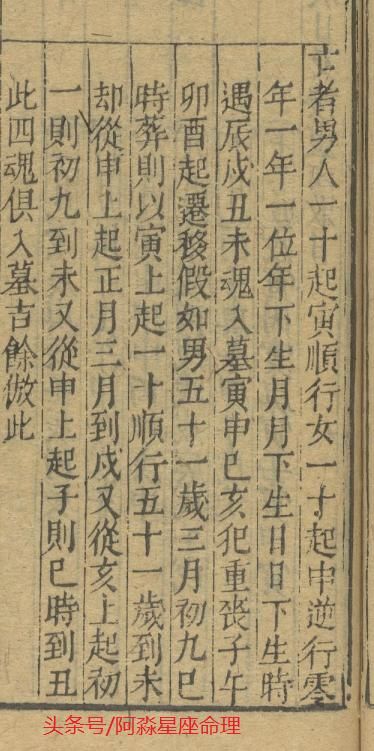 亡者男人一十起寅順行女一十起申逆行零
年一年一位年下生月月下生日日下生時
遇辰戌丑未魂入墓寅申巳亥犯重喪子午
卯酉起遷移假如男五十一歲三月初九巳
時葬則以寅上起一十順行五十一歲到未
却從申上起正月三月到戌又從亥上起初
一則初九到未又從申上起子則巳時到丑
此四魂俱入墓吉餘倣此
头条号/阿淼星座命理